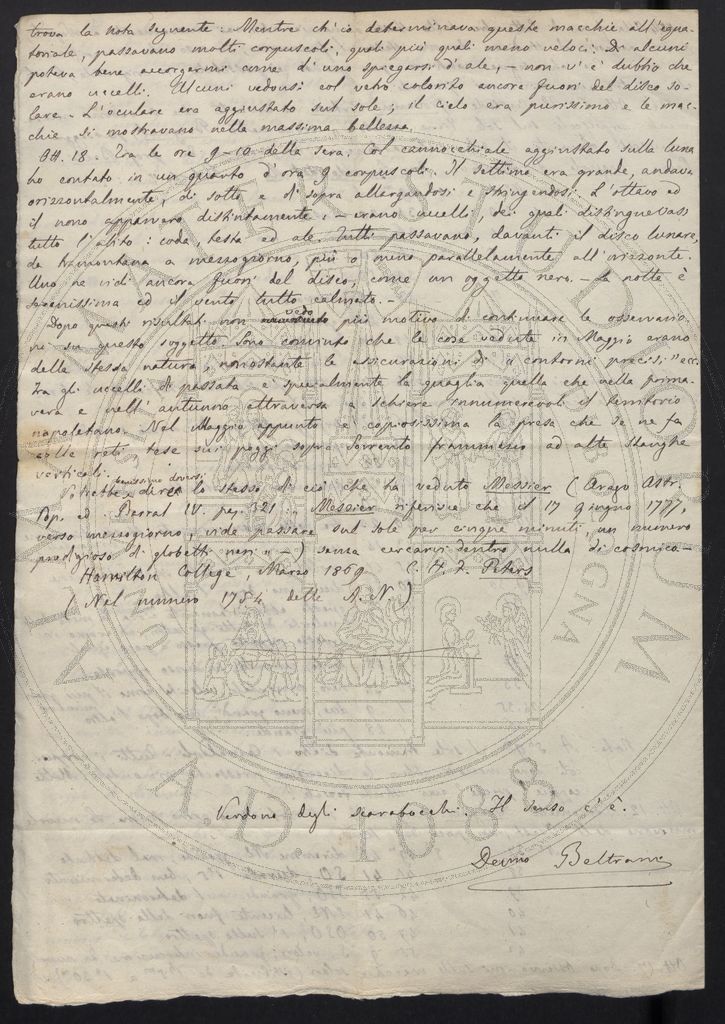 trova la nota seguente: Mentre ch'io determinava queste macchie all'equa-
toriale, passavano molti corpuscoli, quali più quali meno veloci. Di alcuni
poteva bene accorgermi come d'uno spiegarsi d'ale, – non v'è dubbio che
erano uccelli. Alcuni vedonsi col vetro colorito ancora fuori del disco so-
lare. – L'oculare era aggiustato sul sole; il cielo era purissimo e le mac-
chie si mostravano nella massima bellezza.
Ott. 18. Tra le ore 9–10 della sera. Col cannocchiale aggiustato sulla luna
ho contato in un quarto d'ora 9 corpuscoli. Il settimo era grande, andava
orizzontalmente, di sotto e di sopra allargandosi e stringendosi. L'ottavo ed
il nono apparvero distintamente: – erano uccelli, dei quali distinguevasi
tutto l'abito: coda, testa ed ale. Tutti passavano, davanti il disco lunare,
da tramontana a mezzogiorno, più o meno parallelamente all'orizzonte.
Uno ne vidi ancora fuori del disco, come un oggetto nero. – La notte è
serenissima ed il vento tutto calmato. –
Dopo questi risultati non vedo più motivo di continuare le osservazio-
ni su questo soggetto. Sono convinto che le cose vedute in Maggio erano
della stessa natura, nonostante le assicurazioni di " contorni precisi " ecc.
Tra gli uccelli di passata è specialmente la quaglia quella che nella prima-
vera e nell'autunno attraversa a schiere innumerevoli il territorio
napoletano. Nel Maggio appunto è copiosissima la presa che se ne fa
colle reti, tese sui poggi sopra Sorrento frammezzo ad alte stanghe
verticali.
Potrebbe dirsi lo stesso di ciò che ha veduto Messier (Arago Astr.
Pop. ed Barral IV. pag. 321: " Messier riferisce che il 17 giugno 1777,
verso mezzogiorno, vide passare sul sole per cinque minuti, un numero
prodigioso di globetti neri " –) senza cercarvi dentro nulla di cosmico –
Hamilton College, Marzo 1869 C. H. F. Peters
(Nel numero 1754 delle A. N.)
AD 1088
Perdona degli scarabocchi. Il senso c'è.
Beltrami